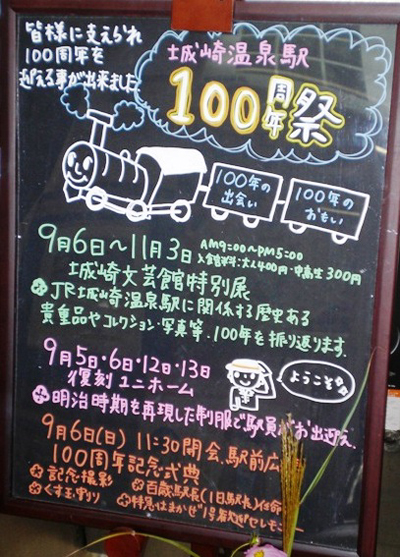 皆様に支えられ
100周年を
迎える事が出来ました
城崎温泉駅
100周年祭
100年の
出会い
100年の
おもい
9月6日～11月3日 AM9:00～PM5:00
入館料:大人400円・中高生300円
城崎文芸館特別展
JR城崎温泉駅に関係する歴史ある
貴重品やコレクション・写真等、100年を振り返ります。
9月5日・6日・12日・13日
復刻ユニホーム
ようこそ
明治時期を再現した制服で駅員がお出迎え
9月6日(日) 11:30開会、駅前広
100周年記念式典
記念撮影
百歳駅長(1日駅長)任命
くす玉
特急はまかぜ1号歓迎セレモニー